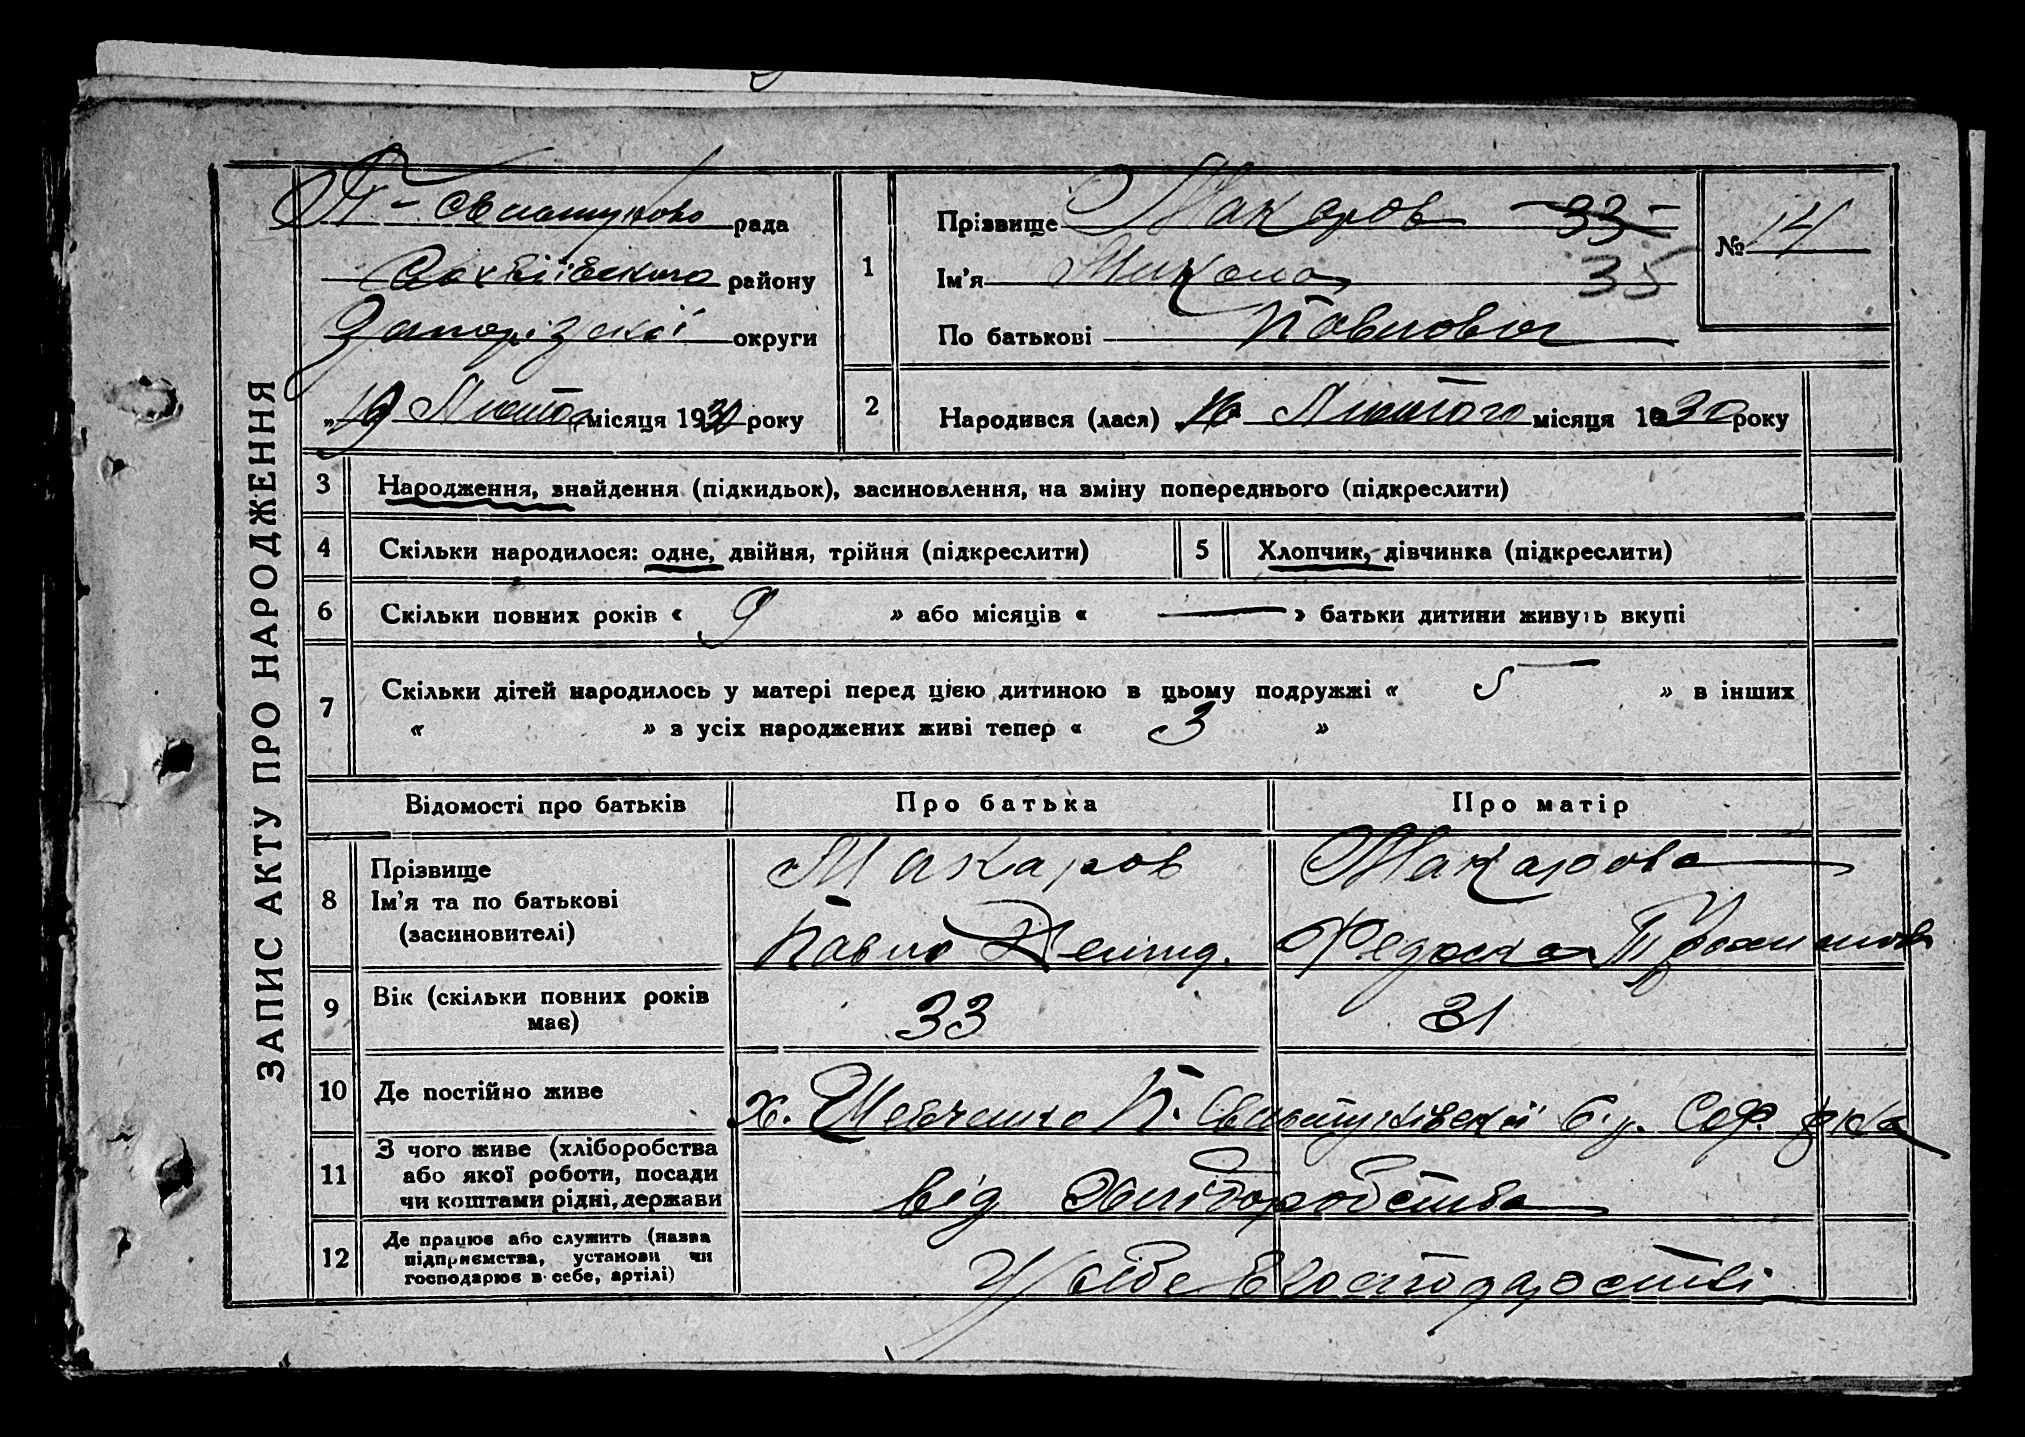 ЗАПИС АКТУ ПРО НАРОДЖЕННЯ
рада
району
Запорізскої округи
„19 Лютого місяця 1930 року
1
Прізвище Макаров 33
Ім'я Микола 35
По батькові Павлович
№ 14
2
Народився (лася) „16 Лютого місяця 1930 року
3 Народження, знайдення (підкидьок), засиновлення, на зміну попереднього (підкреслити)
4 Скільки народилося: одне, двійня, трійня (підкреслити)
5 Хлопчик, дівчинка (підкреслити)
6 Скільки повних років « 9 » або місяців « — » батьки дитини живуть вкупі
7 Скільки дітей народилось у матері перед цією дитиною в цьому подружжі « 5 » в інших
« » з усіх народжених живі тепер « 3 »
Відомості про батьків Про батька Про матір
8 Прізвище
Ім'я та по батькові
(засиновителі)
Макаров
Павло
Макарова
Федоска
9 Вік (скільки повних років
має)
33
31
10 Де постійно живе
х. Шевченко П. Святуківскої с.р. Соф. р-на
11 З чого живе (хліборобства
або якої роботи, посади
чи коштами рідні, держави
від Хліборобства
12 Де працює або служить (назва
підприємства, установи чи
господарює в себе, артілі)
У собе в господарстві